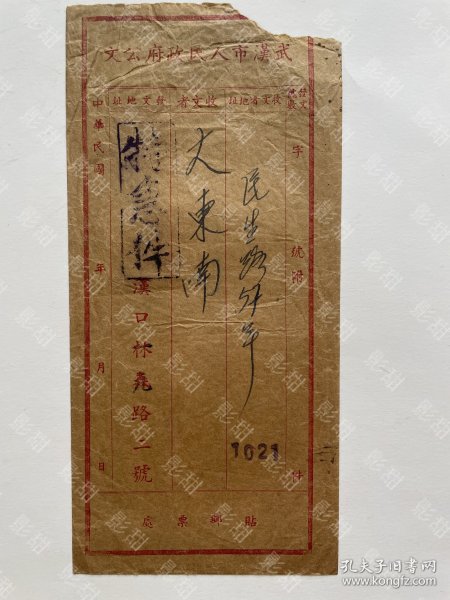 武漢市人民政府公文
字 號附 件
收文者地址
民生路
1021
收文者
大東南
發文地址
特急件
漢口林堯路二號
中華民國 年 月 日
貼郵票處
孔夫子旧书网
www.kongfz.com
影柑